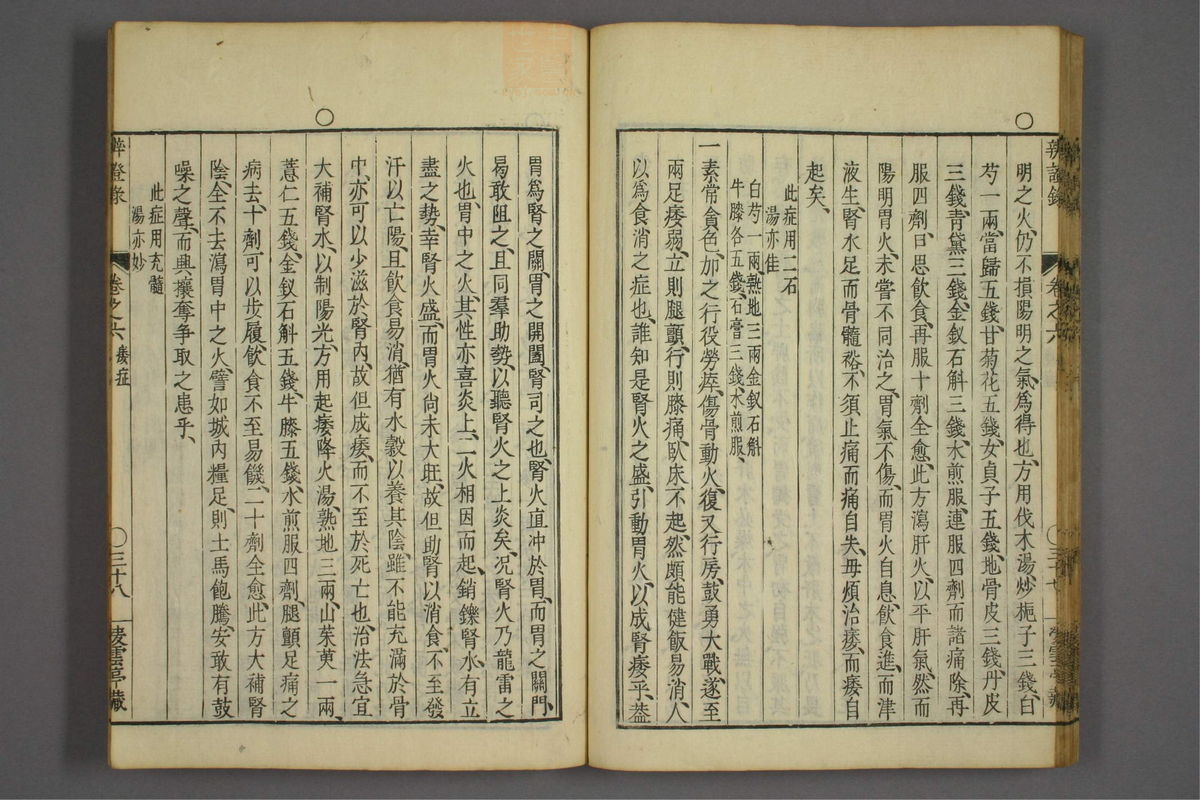 ○
明之火仍不損陽明之氣爲得也方用伐木湯炒梔子三錢白
芍一兩當歸五錢甘菊花五錢女貞子五錢地骨皮三錢丹皮
三錢青黛三錢金釵石斛三錢水煎服連服四劑而諸痛除再
服四劑曰思飲食再服十劑全愈此方瀉肝火以平肝氣然而
陽明胃火未嘗不同治之胃氣不傷而胃火自息飲食進而津
液生腎水足而骨髓裕不須止痛而痛自失毋煩治痿而痿自
起矣
此症用二石
湯亦佳
白芍一兩熟地三兩金釵石斛
牛膝各五錢石膏三錢水煎服
一素常貪色加之行役勞瘁傷骨動火復又行房鼓勇大戰遂至
兩足痿弱立則腿顫行則膝痛臥床不起然頗能健飯易消人
以爲食消之症也誰知是腎火之盛引動胃火以成腎痿乎蓋
胃爲腎之關胃之開闔腎司之也腎火直冲於胃而胃之關門
曷敢阻之且同羣助勢以聽腎火之上炎矣况腎火乃龍雷之
火也胃中之火其性亦喜炎上二火相因而起銷鑠腎水有立
盡之勢幸腎火盛而胃火尚未大旺故但助腎以消食不至發
汗以亡陽且飲食易消猶有水穀以養其陰雖不能充滿於骨
中亦可以少滋於腎內故但成痿而不至於死亡也治法急宜
○
大補腎水以制陽光方用起痿降火湯熟地三兩山茱萸一兩
薏仁五錢金釵石斛五錢牛膝五錢水煎服四劑腿顫足痛之
病去十劑可以步履飲食不至易饑二十劑全愈此方大補腎
陰全不去瀉胃中之火譬如城內糧足則士馬飽騰安敢有鼓
噪之聲而興攘奪爭取之患乎
此症用充髓
湯亦妙
辨證錄
卷之六 痿症
○三十八
凌雲亭藏